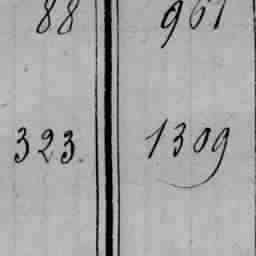 88 961
323. 1309